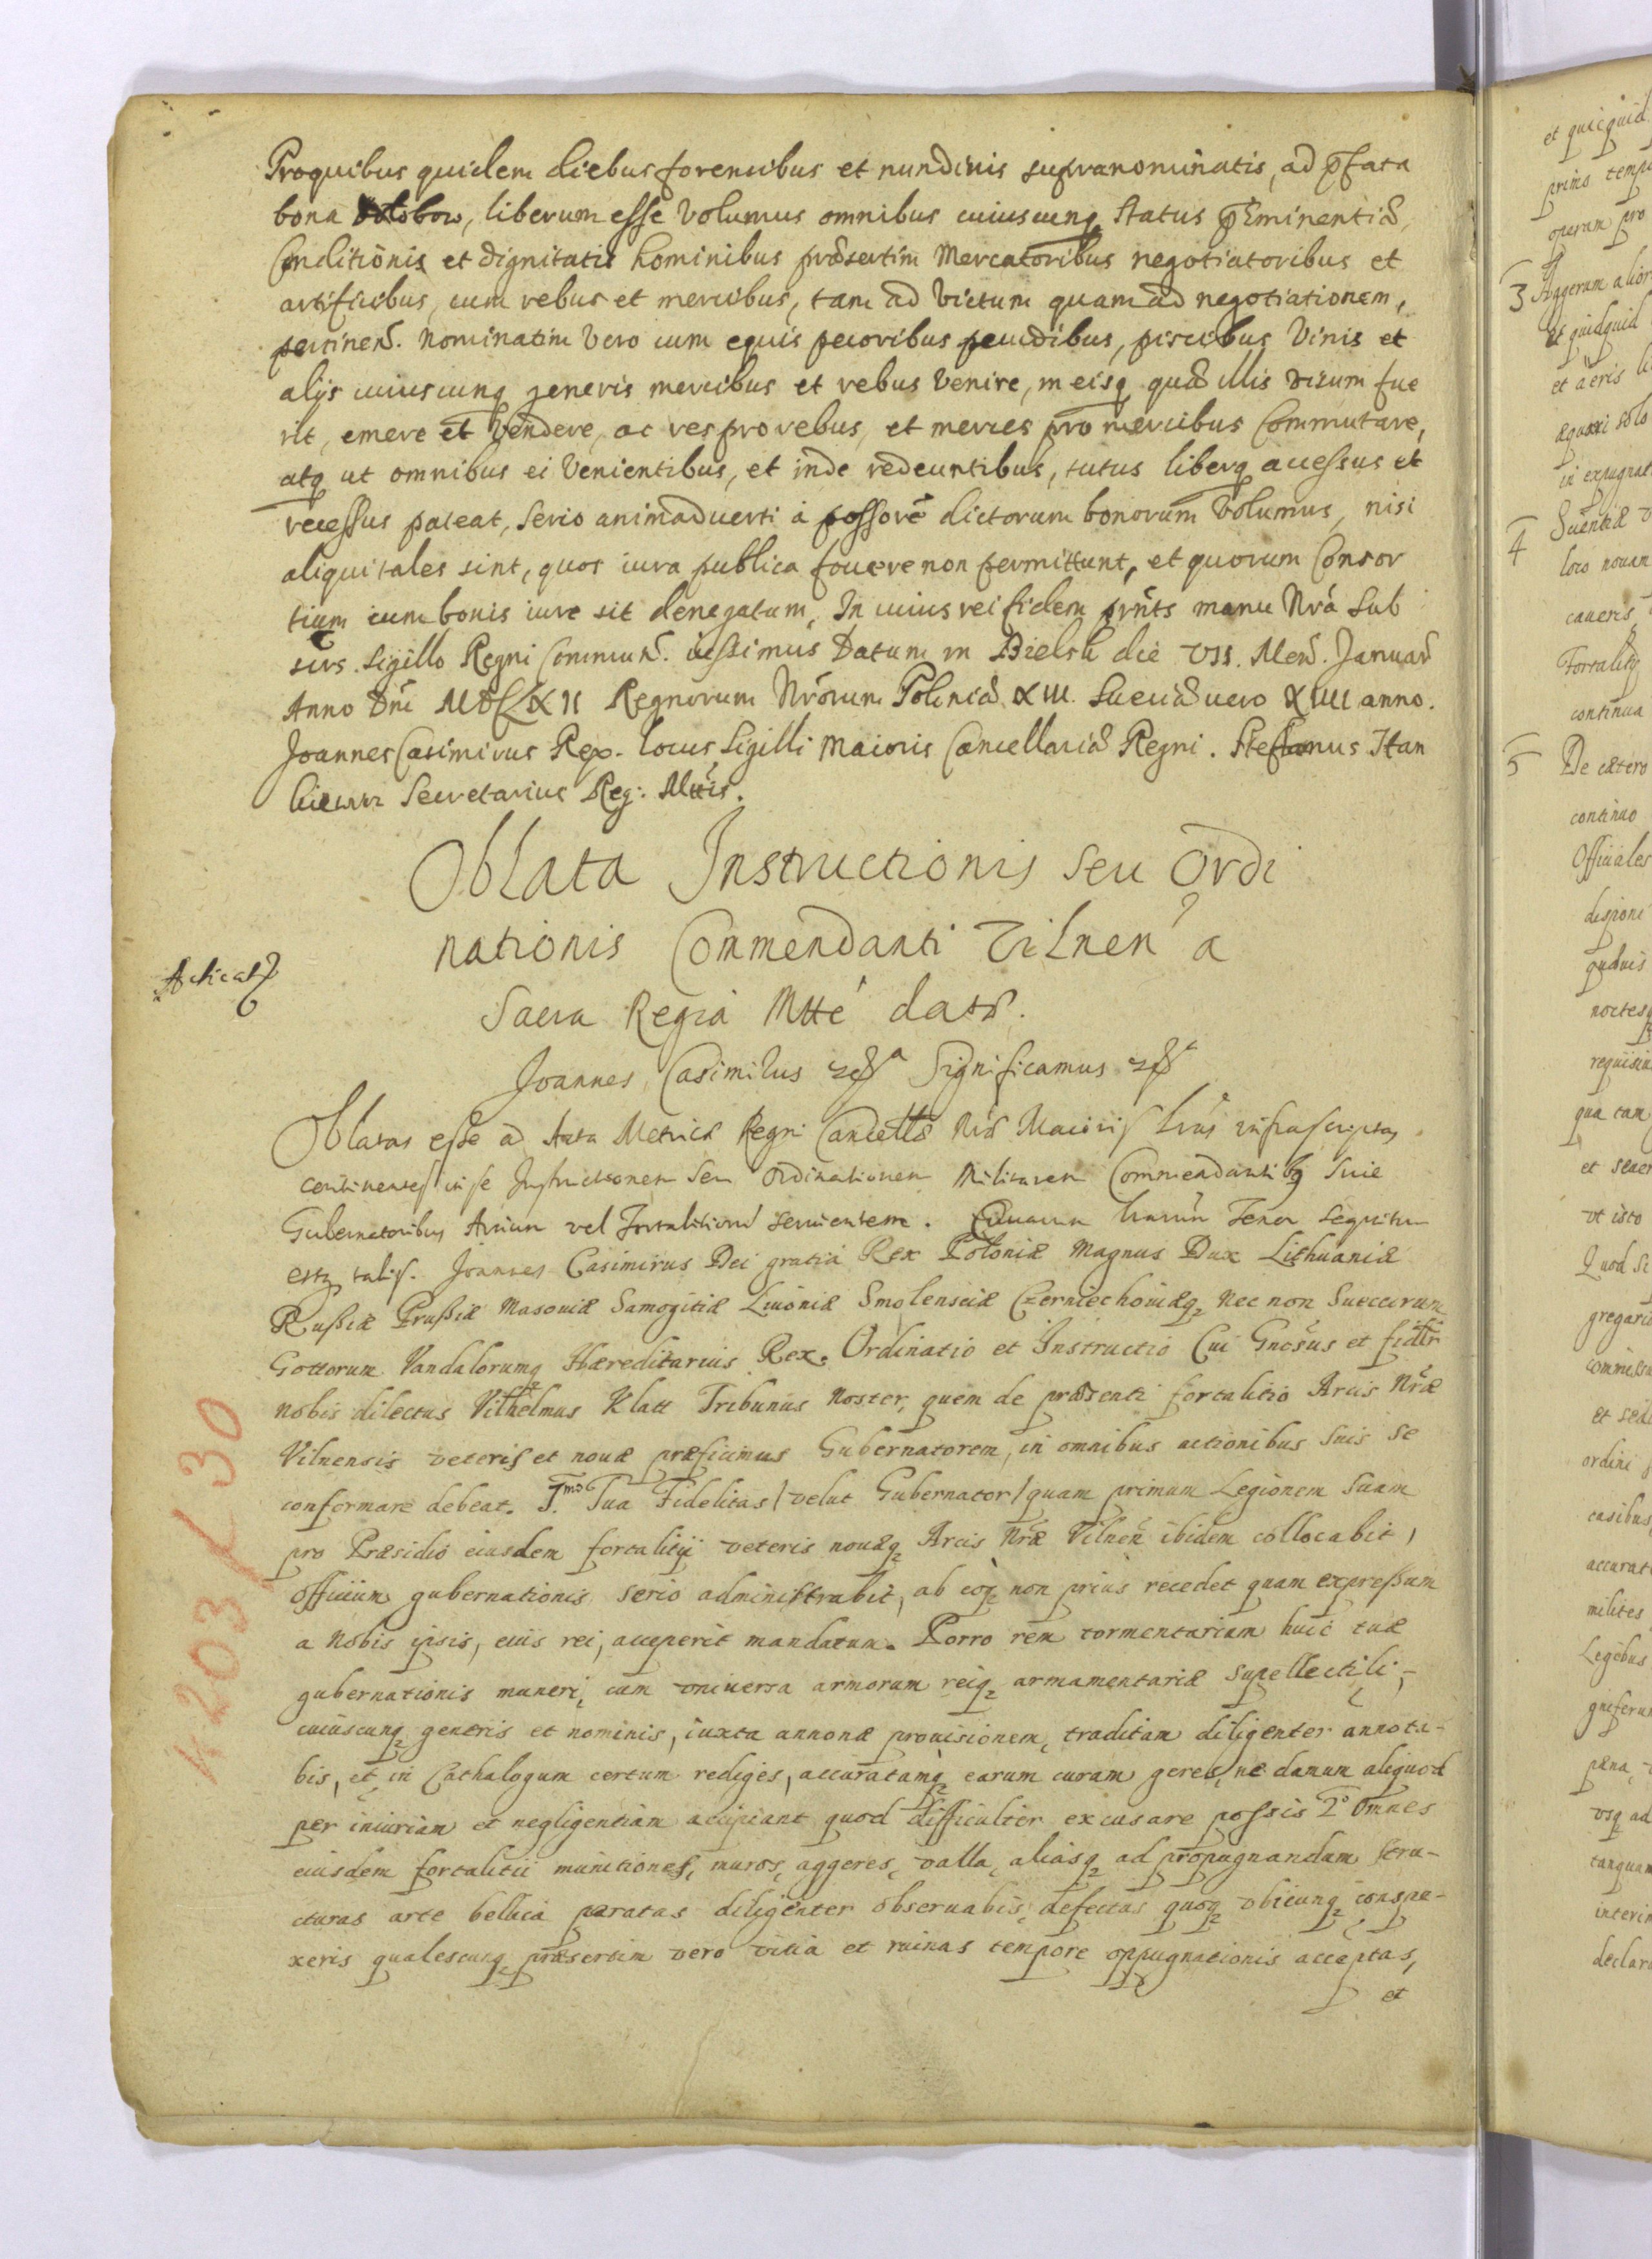 Proquibus quidem diebus forensibus et nundinis supranominatis, ad pfata
bona liberum esse Volumus omnibus cuiuscunq Status pEminentiæ,
Conditionis et dignitatis hominibus præsertim Mercatoribus negotiatoribus et
artificibus, cum rebus et mercibus, tam ad Victum quam ad negotiationem,
pertinen. Nominatim Vero cum equis pecoribus pecudibus, piscibus Vinis et
alijs cuiuscunq generis mercibus et rebus Venire, in eisq quæ illis visum fue
rit, emere et Vendere, ac res pro rebus, et merces pro mercibus Commutare,
atq ut omnibus ei Venientibus, et inde redeuntibus, tutus liberq accessus et
recessus pateat, serio animaduerti à possore dictorum bonorum Volumus, nisi
aliqui tales sint, quos iura publica fouere non permittunt, et quorum Consor
tium cum bonis iure sit denegatum, In cuius rei fidem prnts manu Nrâ Sub
scrs. Sigillo Regni Communi. iussimus Datum in Bielsk die VII. Men. Januar
Anno Dni MDCLXII Regnorum Nrorum Poloniæ XIII. Sueciæ uero XIIII anno.
Joannes Casimirus Rex. locus Sigilli Maioris Cancellariæ Regni. Stefanus Han
kiewicz Secretarius Reg: Mttis.
Oblata Instructionis seu Ordi
nationis Commendanti Vilnen a
Sacra Regia Mtte datæ.
Acticat
Joannes Casimirus Significamus
Oblatas esse ad Acta Metrices Regni Cancellæ Nræ Maioris Lras infrascriptas
continentes in se Instructionem seu Ordinationem Militarem Commendantibq siue
Gubernatoribus Arcium vel Fortalitiorum seruientem. Quarum lrarum Tenor sequitur
estq talis. Joannes Casimirus Dei gratia Rex Poloniæ Magnus Dux Lithuaniæ
Russiæ Prussiæ Masouiæ Samogitiæ Liuoniæ Smolensciæ Czerniechouiæq. Nec non Suecorum
Gottorum Vandalorumq Hæreditarius Rex. Ordinatio et Instructio Cui Gnosus et fidlr
nobis dilectus Vilhelmus Klatt Tribunus Noster, quem de præsenti fortalitio Arcis Nræ
Vilnensis veteris et nouæ præficimus Gubernatorem, in omnibus actionibus suis se
conformare debeat. Imo Tua Fidelitas / velut Gubernator / quam primum Legionem suam
pro Præsidio eiusdem fortalitij veteris nouæq Arcis Nræ Vilnen ibidem collocabit,
officium gubernationis serio administrabit, ab eoq non prius recedet quam expressum
a Nobis ipsis, eius rei, acceperit mandatum. Porro rem tormentariam huic tuæ
gubernationis muneri, cum vniuersa armorum reiq armamentariæ supellectili,
cuiuscunq generis et nominis, iuxta annonæ prouisionem, traditam diligenter annota-
bis, et in Cathalogum certum rediges, accuratamq earum curam geres, ne damnum aliquod
per iniuriam et negligentiam accipiant quod difficulter excusare possis 2o Omnes
eiusdem fortalitii munitiones, muros, aggeres, valla, aliasq ad propugnandum stru-
cturas arte bellica paratas diligenter obseruabis, defectus quoq vbicunq conspe-
xeris qualescunq præsertim vero vitia et ruinas tempore oppugnationis acceptas,
et
4203/30
et quicquid
primo temp
operam pro
3 Aggerum alior
et quidquid
et aëris
æquari solo
in expugnat
4 Suentæ
loco nouan
caueris
Fortalitij
continua
5 De cætero
continuo
Officiales
disponi
quduis
noctesq
requisi
qua tam
et seuer
vt isto
Quod si
gregari
commissu
et sed
ordini
casibus
accurat
milites
Legibus
gniferum
pæna
vsq ad
tanquam
interim
declara